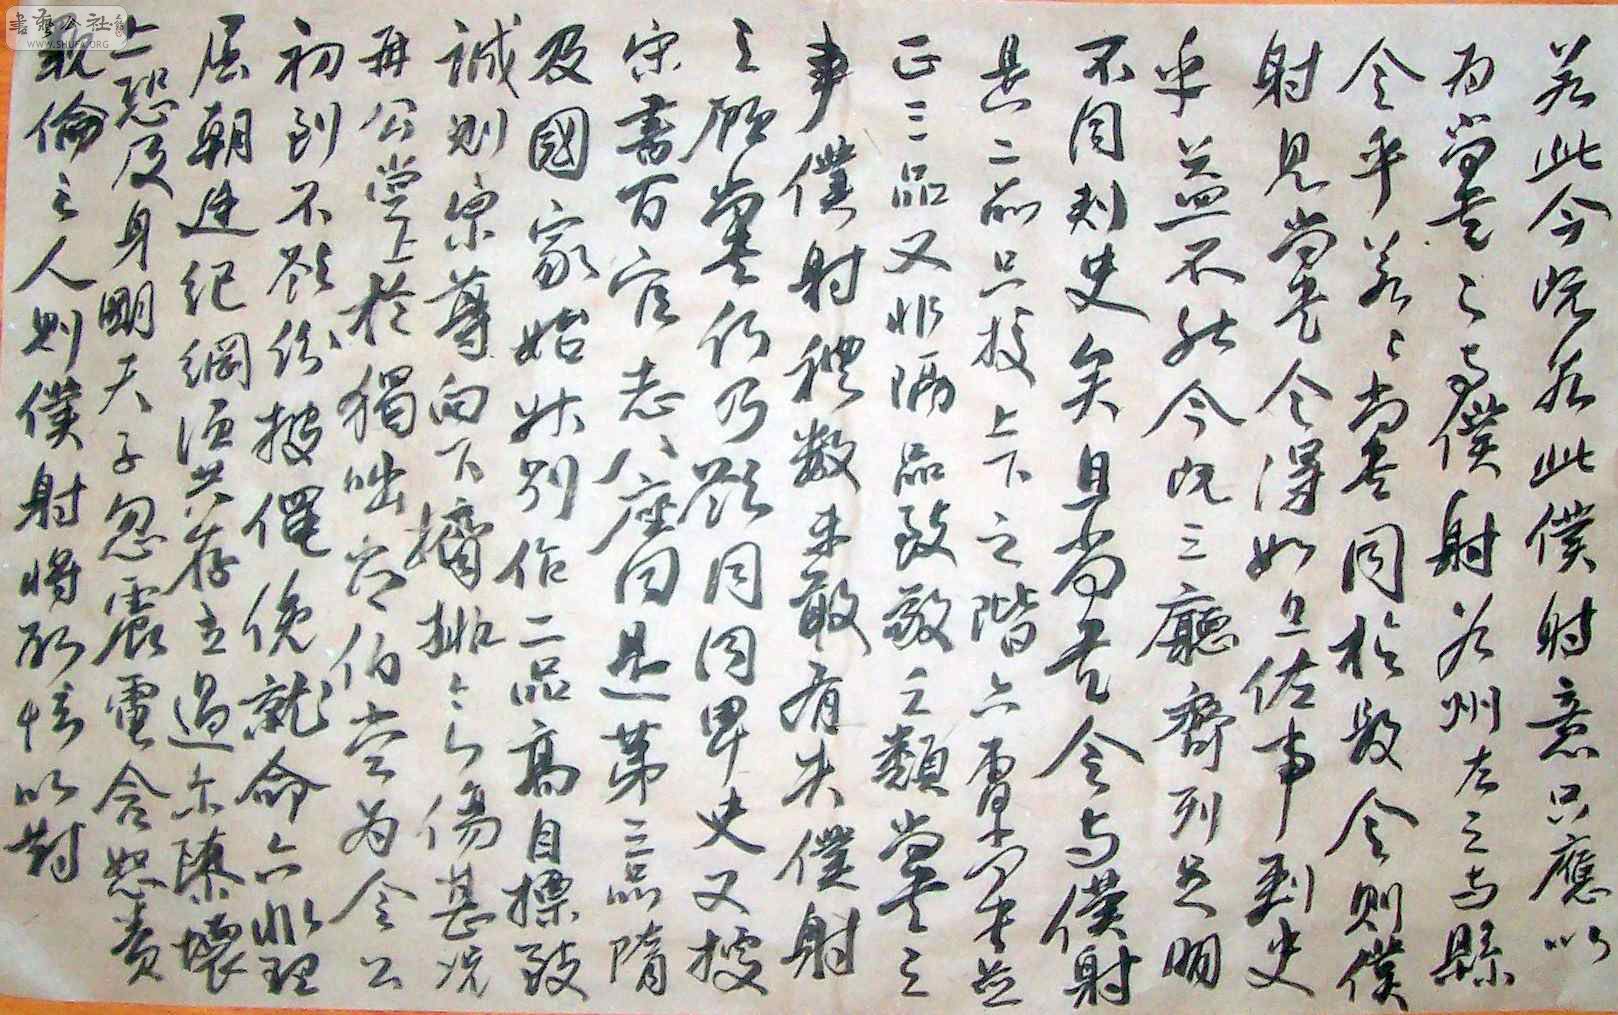 若此今既若此僕射意只應以
為尚書之与僕射若州左之与縣
令乎若以尚書同於縣令則僕
射見尚書令得如上佐事刺史
乎益不然今既三廳齊列足明
不同刺史矣且尚書令与僕射
是二品只校上下之階六曹尚書並
正三品又非隔品致敬之類尚書之
事僕射禮數未敢有失僕射
之顧尚書何乃欲同同卑吏又據
宋書百官志八座同是第三品隋
及國家始升別作二品高自標致
誠則崇尊向下擠排無乃傷甚況
再公堂上於猥咄常伯當為令公
初到不欲紛披僶俛就命亦非理
屈朝廷紀綱須共存立過尔隳壞
上恐及身明天子忽震電含怒責
斁倫之人則僕射將何辭以對
書藝公社
WWW.SHUFA.ORG